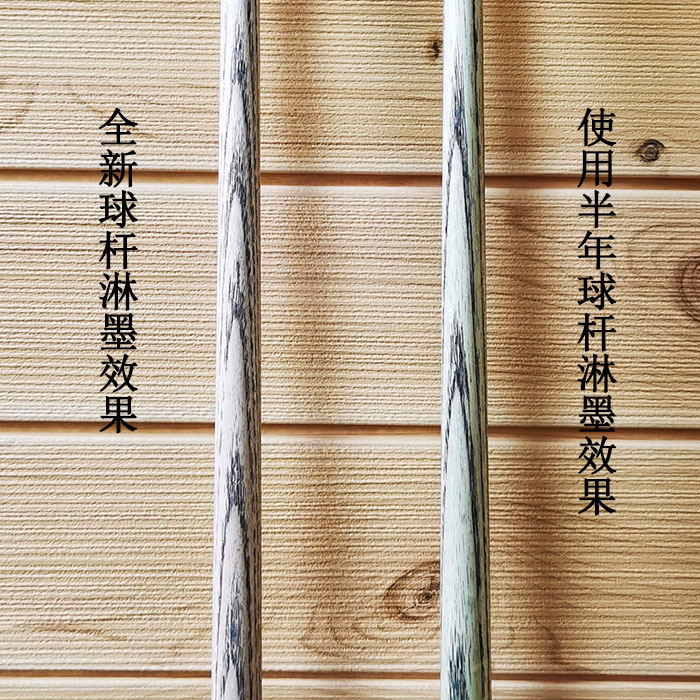 全新球杆淋墨效果
使用半年球杆淋墨效果